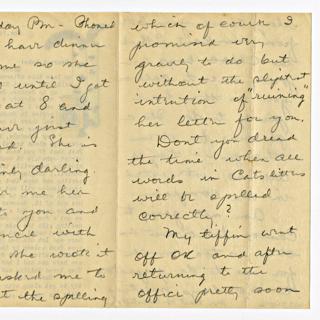 day Pm - Phoned
have dinner
me so she
until I got
at 8 and
just
She is
darling
me her
you and
with
she wrote it
asked me to
the spelling
which of course I
promised very
gravely to do but
without the slightest
intention of "ruining"
her letter for you.
Dont you dread
the time when all
words in Cats letters
will be spelled
correctly?
My tiffin went
off OK and after
returning to the
office pretty soon